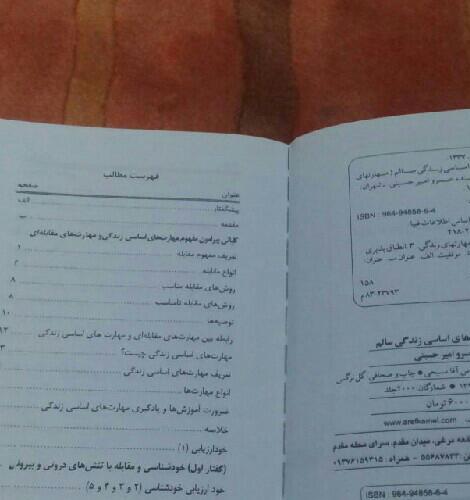 فهرست مطالب
عنوان صفحه
پیشگفتار الف
مقدمه
کلیاتی پیرامون مفهوم مهارت‌های اساسی زندگی و مهارت‌های مقابله‌ای
تعریف مفهوم مقابله ۱
انواع مقابله ۲
روش‌های مقابله مناسب ۸
روش‌های مقابله نامناسب ۸
توصیه‌ها ۱۰
رابطه بین مهارت‌های مقابله‌ای و مهارت های اساسی زندگی
مهارت‌های اساسی زندگی چیست؟
تعریف مهارت‌های اساسی زندگی
انواع مهارت‌ها
ضرورت آموزش‌ها و یادگیری مهارت‌های اساسی زندگی
خلاصه
خودارزیابی (۱)
(گفتار اول) خودشناسی و مقابله با تنش‌های درونی و بیرونی
خودارزیابی خودشناسی (۲ و ۳ و ۴ و ۵)
۱۳۳۷
اساسی زندگی سالم
خسرو امیر حسینی. تهران:
ISBN: 964-94856-6-4
اساس اطلاعات فیپا
مهارتهای زندگی. ۳. انطباق پذیری
الف. عنوان. ب. عنوان:
۱۵۸
۸۳-۲۳۷۹۳م
های اساسی زندگی سالم
خسرو امیر حسینی
چاپ و صحافی: گل نرگس
شمارگان: ۲۰۰۰ جلد
تومان
www.arefkamel.com
میدان مقدم، سرای محله مقدم
همراه: ۰۹۱۲۶۱۵۹۳۱۵
ISBN: 964-94856-6-4